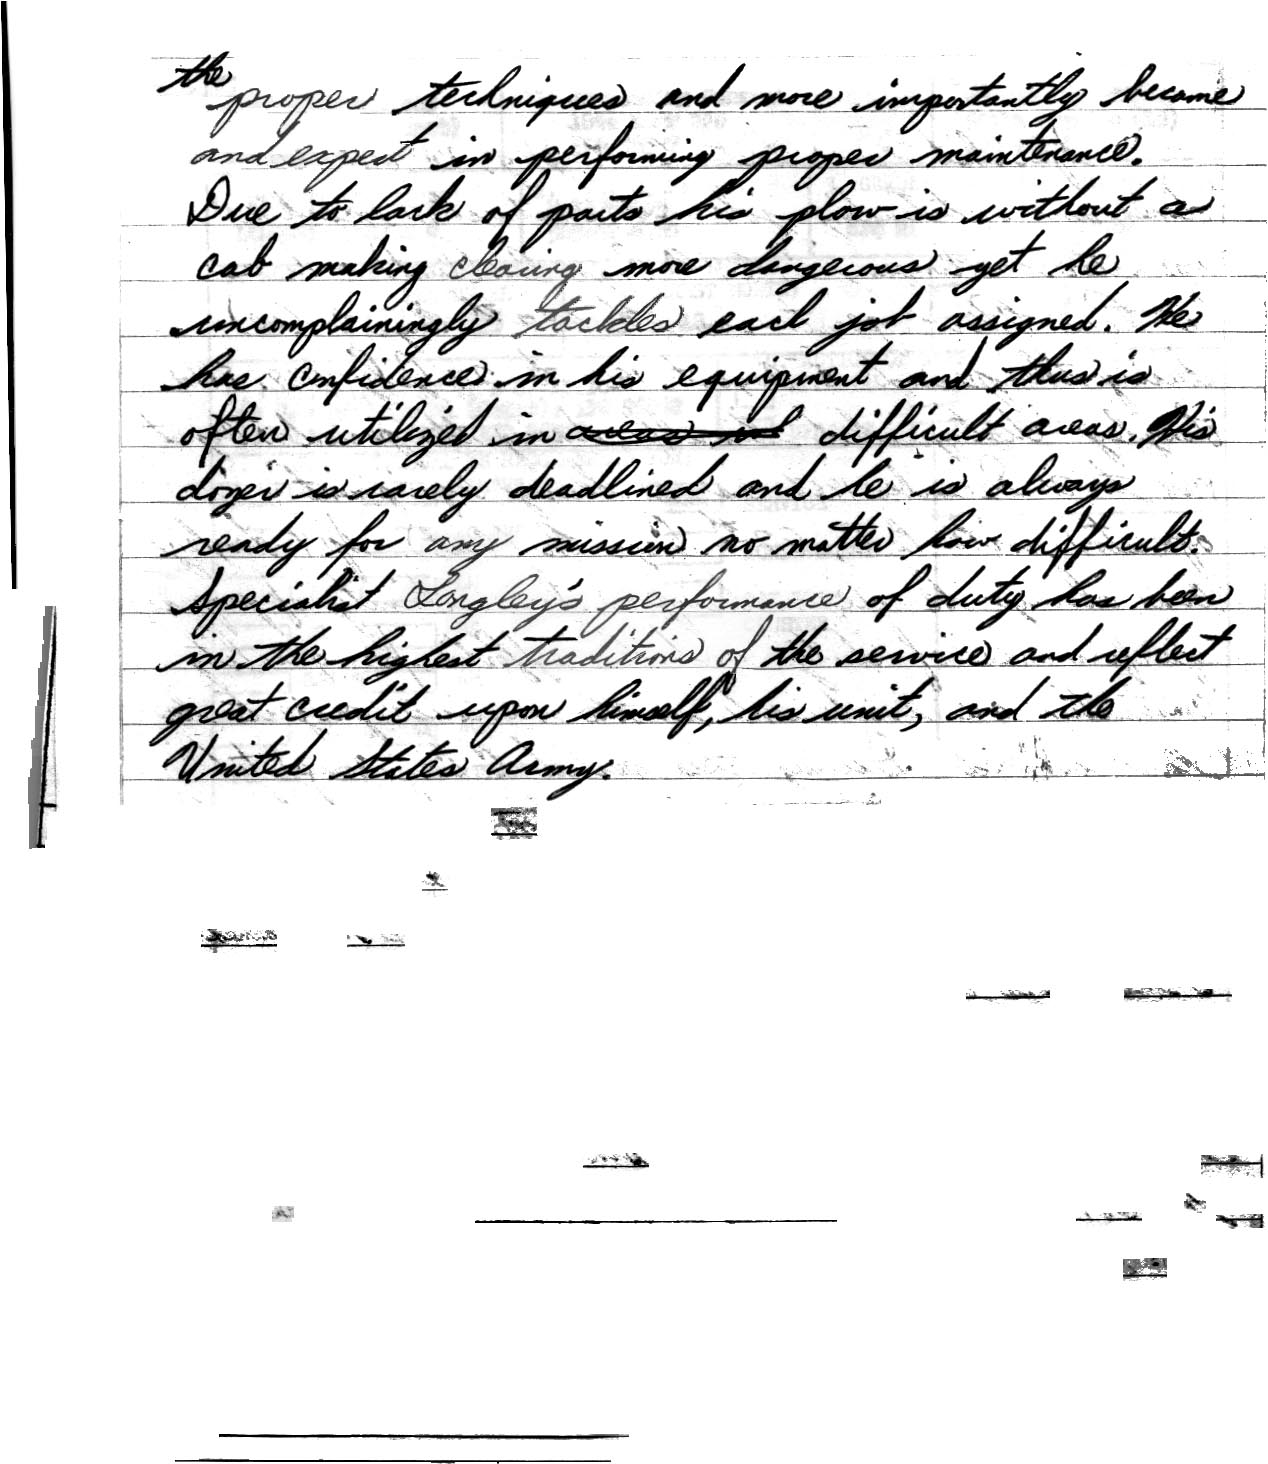 the proper techniques and more importantly became
and expert in performing proper maintenance.
Due to lack of parts his plow is without a
cab making clearing more dangerous yet he
uncomplainingly tackles each job assigned. He
has confidence in his equipment and thus is
often utilized in areas and difficult areas. His
dozer is rarely deadlined and he is always
ready for any mission no matter how difficult.
Specialist Longley's performance of duty has been
in the highest traditions of the service and reflect
great credit upon himself, his unit, and the
United States Army.